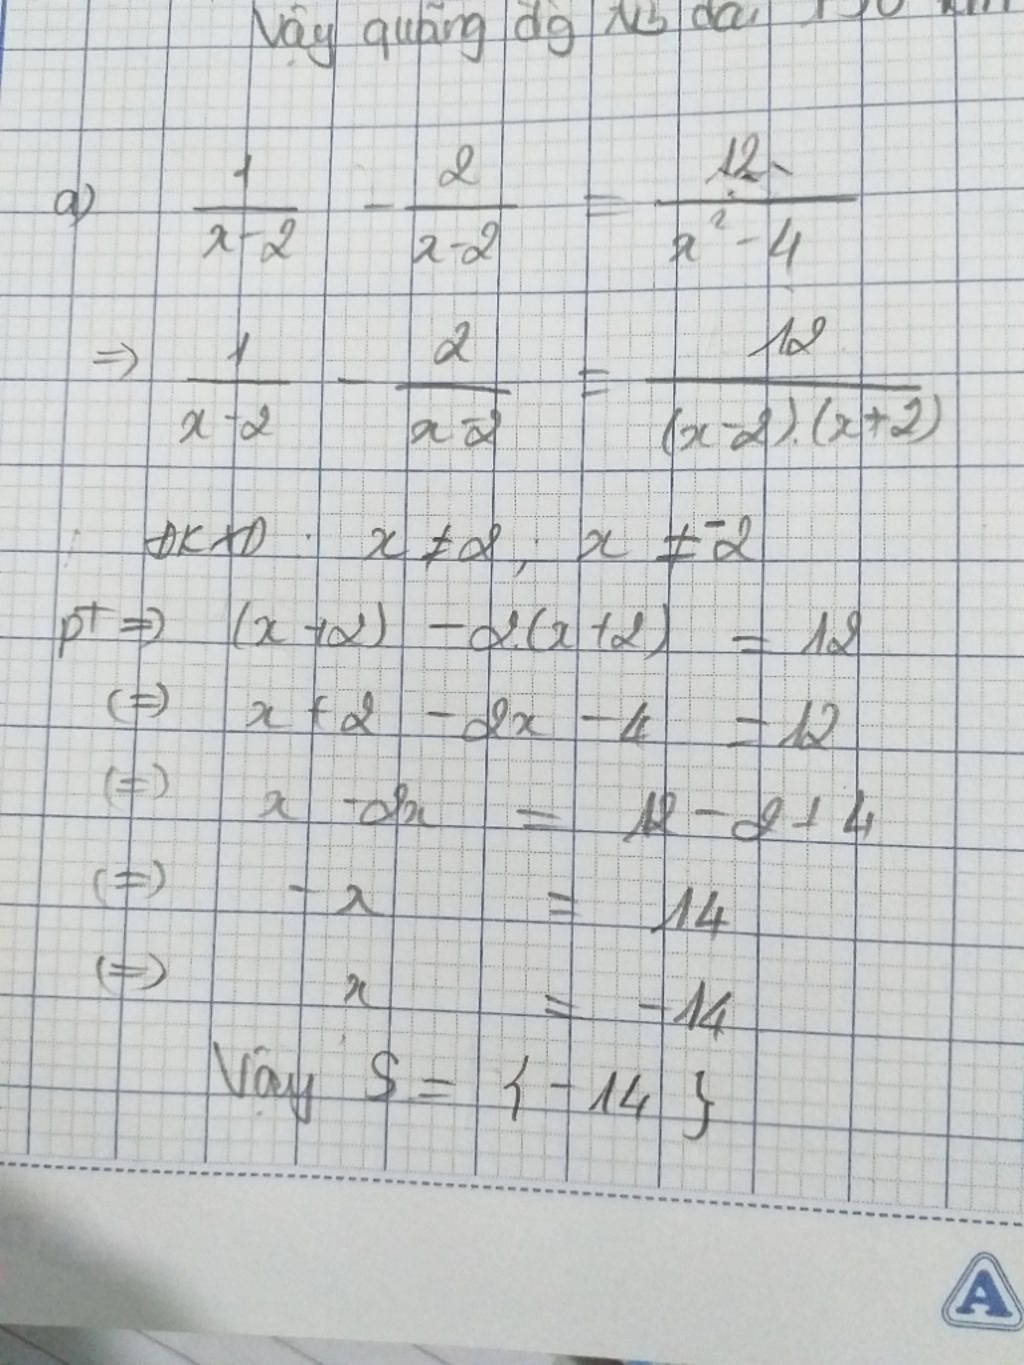 Vậy quãng đg AB dài 150 km
a) 1/(x-2) - 2/(x-2) = 12/(x²-4)
=> 1/(x-2) - 2/(x-2) = 12/((x-2).(x+2))
ĐKXĐ : x ≠ 2 ; x ≠ -2
pt => (x+2) - 2.(x+2) = 12
(=) x + 2 - 2x - 4 = 12
(=) x - 2x = 12 - 2 + 4
(=) - x = 14
(=) x = -14
Vậy S = { -14 }
A